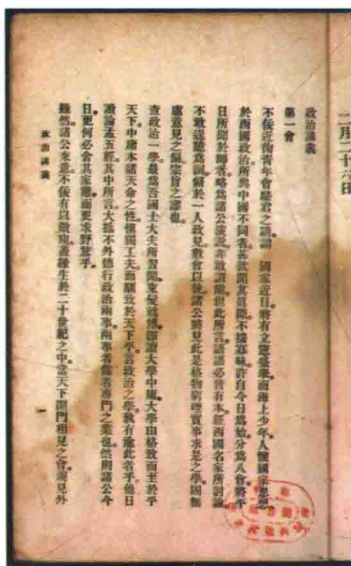 二月二十六日
政治講義
第一會
不佞近徇青年會駱君之請。謂 國家近日將有立憲盛舉。而海上少年。人懷國家思想。
於西國政治。所與中國不同者。甚欲聞其眞際。不揣寡昧。許自今日爲始。分爲八會。將平
日所聞於師者。略爲諸公演說。非敢謂能。但此所言。語語必皆有本。經西國名家所討論。
不敢逞臆爲詞。偏於一人政見。數會以後。諸公將見此是格物窮理實事求是之學。固無
慮意見之偏。宗旨之謬也。
查政治一學。最爲吾國士大夫所習聞。束髮就傅。卽讀大學中庸。大學由格致而至於平
天下。中庸本諸天命之性。愼獨工夫。而馴致於天下平。言政治之學。孰有逾此者乎。他日
讀論孟五經。其中所言。大抵不外德行政治兩事。兩事者。儒者專門之業也。然則諸公今
日更何必舍其家雞而更求野鶩乎。
雖然。諸公來意。不佞有以微窺。蓋緣生於二十世紀之中。當天下開門相見之會。親見外
政治講義
一